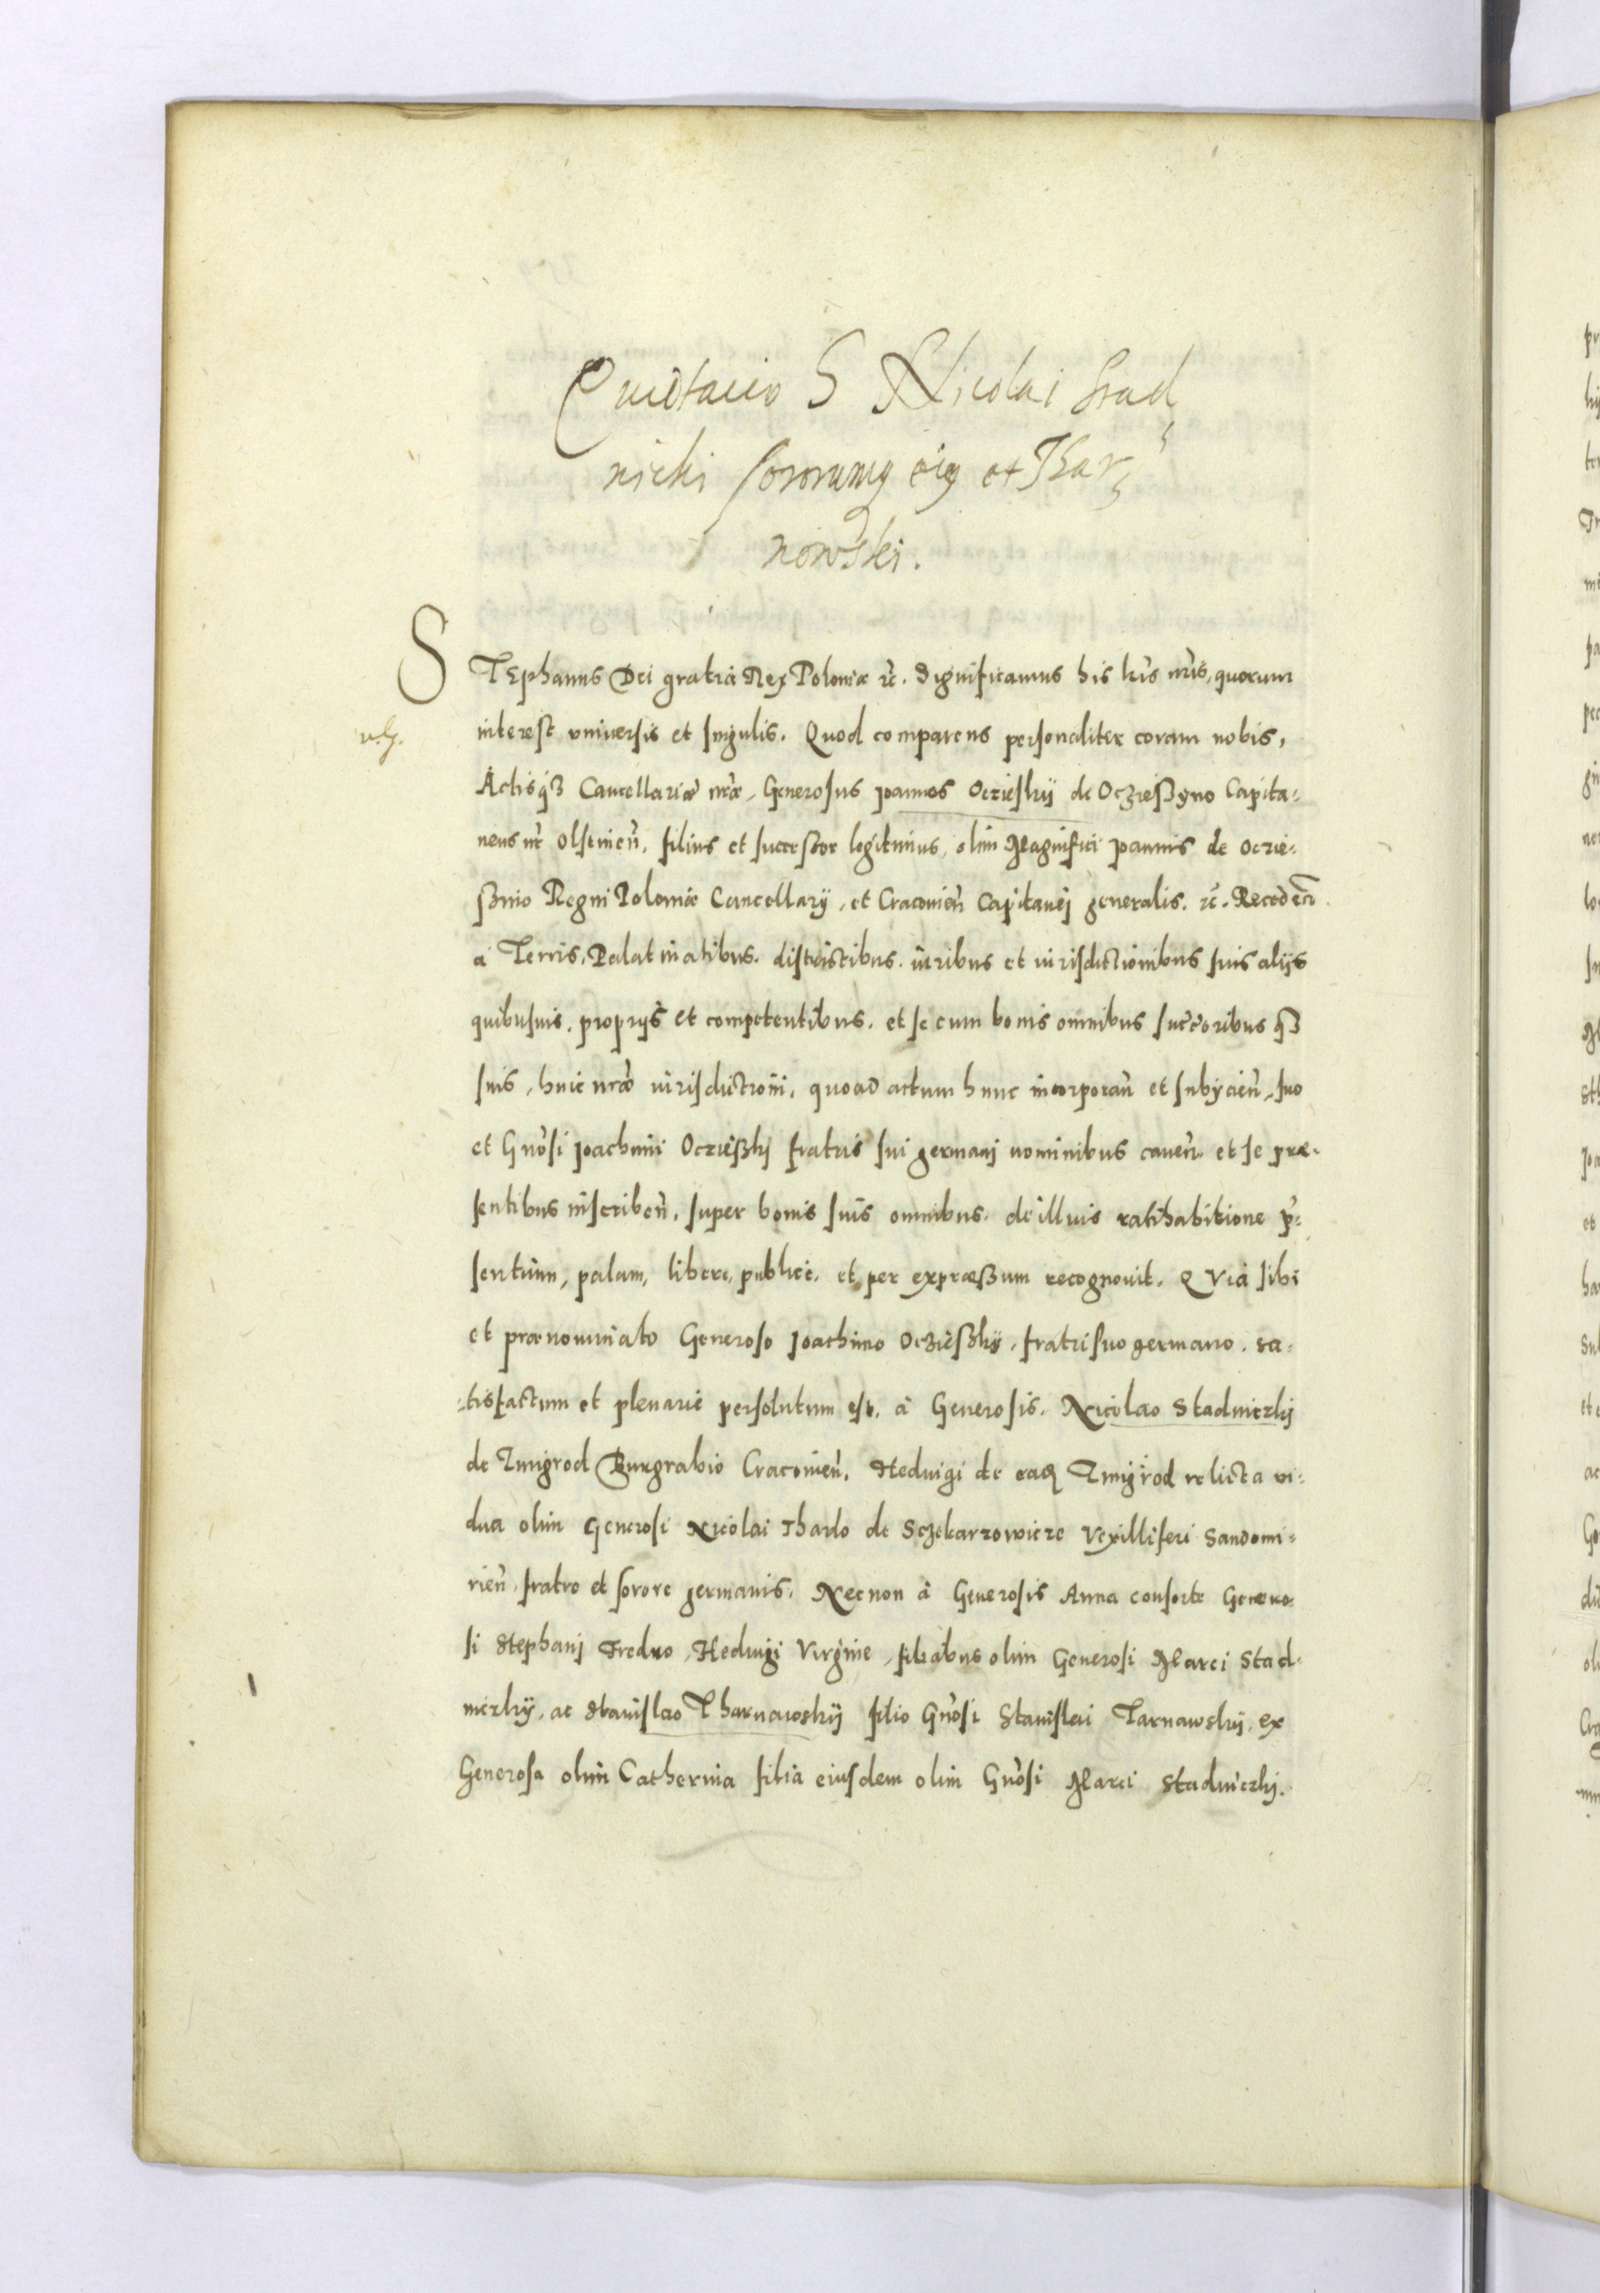 Quietacio G Nicolai Stad
nicki sororumq eiq et Thar
nowski.
STEphanus Dei gratia Rex Poloniæ rc̃. Significamus his lr̃is nr̃is, quorum
interest vniuersis et singulis. Quod comparens personaliter coram nobis,
Actisq3 Cancellariæ nr̃æ, Generosus Joannes Oczieskij de Ocziessyno Capita=
neus nr̃ Olstinen̄. filius et successor legitimus, olim Magnifici Joannis de Oczie=
ssino Regni Poloniæ Cancellarij, et Cracouien̄ Capitanej generalis. rc̃. Recedeñ
à Terris, Palatinatibus. districtibus. iuribus et iurisdictionibus suis alijs
quibusuis. proprijs et competentibus. et se cum bonis omnibus succ̃oribus q3
suis, huic nr̃æ iurisdictioni, quoad actum hunc incorporan̄ et subijcien̄, suo
et Gn̄osi Joachimi Oczieszkj fratris sui germanj nominibus cauen̄. et se præ=
sentibus inscriben̄. super bonis suis omnibus. de illius ratihabitione p̄=
sentium, palam, libere, publicè. et per expræssum recognouit. QVia sibi
et prænominato Generoso Joachimo Oczieszkij, fratri suo germano. sa=
=tisfactum et plenariè persolutum est. à Generosis. Nicolao Stadniczkj
de Zmigrod Burgrabio Cracouien̄. Hedwigi de eadẽ Zmigrod relicta vi=
dua olim Generosi Nicolai Tharlo de Sczekarzowicze Vexilliferi Sandomi=
rien̄. fratre et sorore germanis. Necnon à Generosis Anna consorte Genero
si Stephanj Fredro, Hedwigi Virgine, filiabus olim Generosi Marci Stad=
niczkij, ac Stanislao Tharnawskij filio Gn̄osi Stanislai Tarnawskij, ex
Generosa olim Catherina filia eiusdem olim Gn̄osi Marci Stadniczkj.